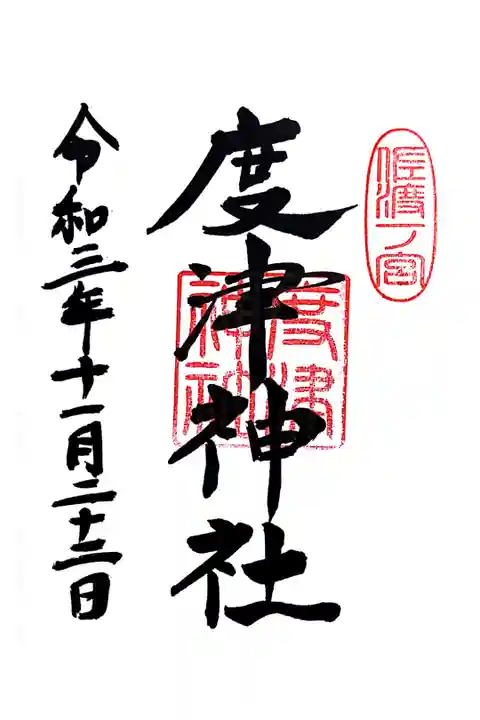 佐渡一ノ宮
度津神社
度津
神社
令和三年十一月二十三日